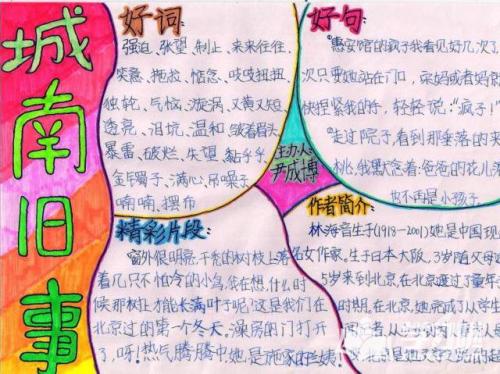 城南旧事
好词:
强迫、张望、制止、来来往往、
笑意、拖拉、惦念、吱吱扭扭、
独轮、气恼、漩涡、又黄又短、
透亮、泪坑、温和、皱着眉头、
暴雷、破烂、失望、黏乎乎、
金镯子、满心、吊嗓子、
喃喃、摆布
好句:
"惠安馆的疯子我看见好几次了
次只要她站在门口,宋妈或者妈
快捏紧我的手,轻轻说:"疯子!"
"走过院子,看到那垂落的夹
桃,我默念着:爸爸的花儿落
也不再是小孩子
主办人:
尹成博
精彩片段:
窗外很明亮,干秃的树枝上落
着几只不怕冷的小鸟,我在想,什么时
候那树上才能长满叶子呢?这是我们在
北京过的第一个冬天。澡房的门打开
了,呀!热气腾腾中她是施家的兰姨!
作者简介:
林海音生于(1918-2001)她是中国现
名女作家。生于日本大阪,3岁随父母返
5岁来到北京,在北京渡过了童年
时期,在北京,她完成了从学生